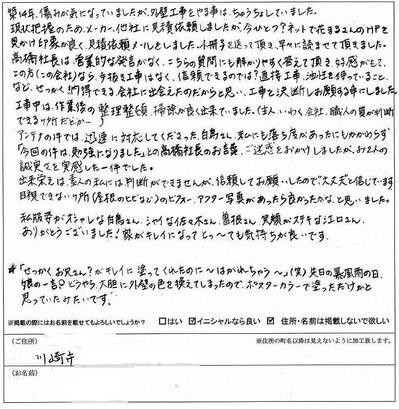 築14年、傷みが気になっていましたが、外壁工事をやる事は、ちゅうちょしていました。
現状把握のため、メーカー、他社に見積依頼しましたが、今ひとつ?ネットで花まるさんのHPを
見かけ印象が良く、見積依頼メールをしました。小冊子を送って頂き、早々に読ませて頂きました。
高橋社長は、営業的な発言がなく、こちらの質問にも解かりやすく答えて頂き、好感がもてて、
この方(この会社)なら、手抜き工事はなく、信頼できるのでは?直接工事、池球を使っていること、
など、せっかく納得できる会社に出会えたのだからと思い、工事を決断しお願いする事にしました。
工事中は、作業後の整理整頓、掃除が良く出来ていました。(主人いわく会社、職人の質が判断
できる所だとか…)
アンテナの件では、迅速に対応してくださった白鳥さん、私にも落ち度があったにもかかわらず
「今回の件は、勉強になりました」との高橋社長のお言葉、ご迷惑をおかけしましたが、お2人の
誠実さを実感した一件でした。
出来栄えは、素人の私には判断ができませんが、信頼してお願いしたので大丈夫と信じています
目視できない所(屋根のヒビなど)のビフォー、アフター写真があったら良かったかな、と思いました。
私服姿がオシャレな白鳥さん、シャイな佐々木さん、曽根さん、笑顔がステキな江口さん、
ありがとうございました!家がキレイになってとっ〜ても気持ちが良いです。
*「せっかくお兄さん?がキレイに塗ってくれたのに〜はがれちゃう〜」(笑)先日の暴風雨の日、
娘の一言?どうやら、大胆に外壁の色を換えてしまったので、ポスターカラーで塗っただけかと
思っていたみたいです。
※掲載の際にはお名前を載せてもよろしいでしょうか? □はい ☑イニシャルなら良い ☑住所・名前は掲載しないで欲しい
(ご住所) ※住所の町名以降は見えないように加工致します。
川崎市
(お名前)